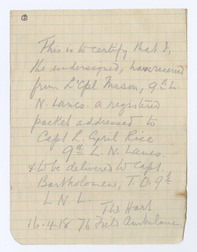 This is to certify that I,
the undersigned, have received
from L/Cpl Mason, 9th L.
N. Lancs. a registered
packet addressed to
Capt L. Cyril Rice
9th L. N. Lancs.
& to be delivered to Capt.
Bartholomew, T.O. 9th
L N L.
The Hart
16.4.18 76 Fld Ambulance